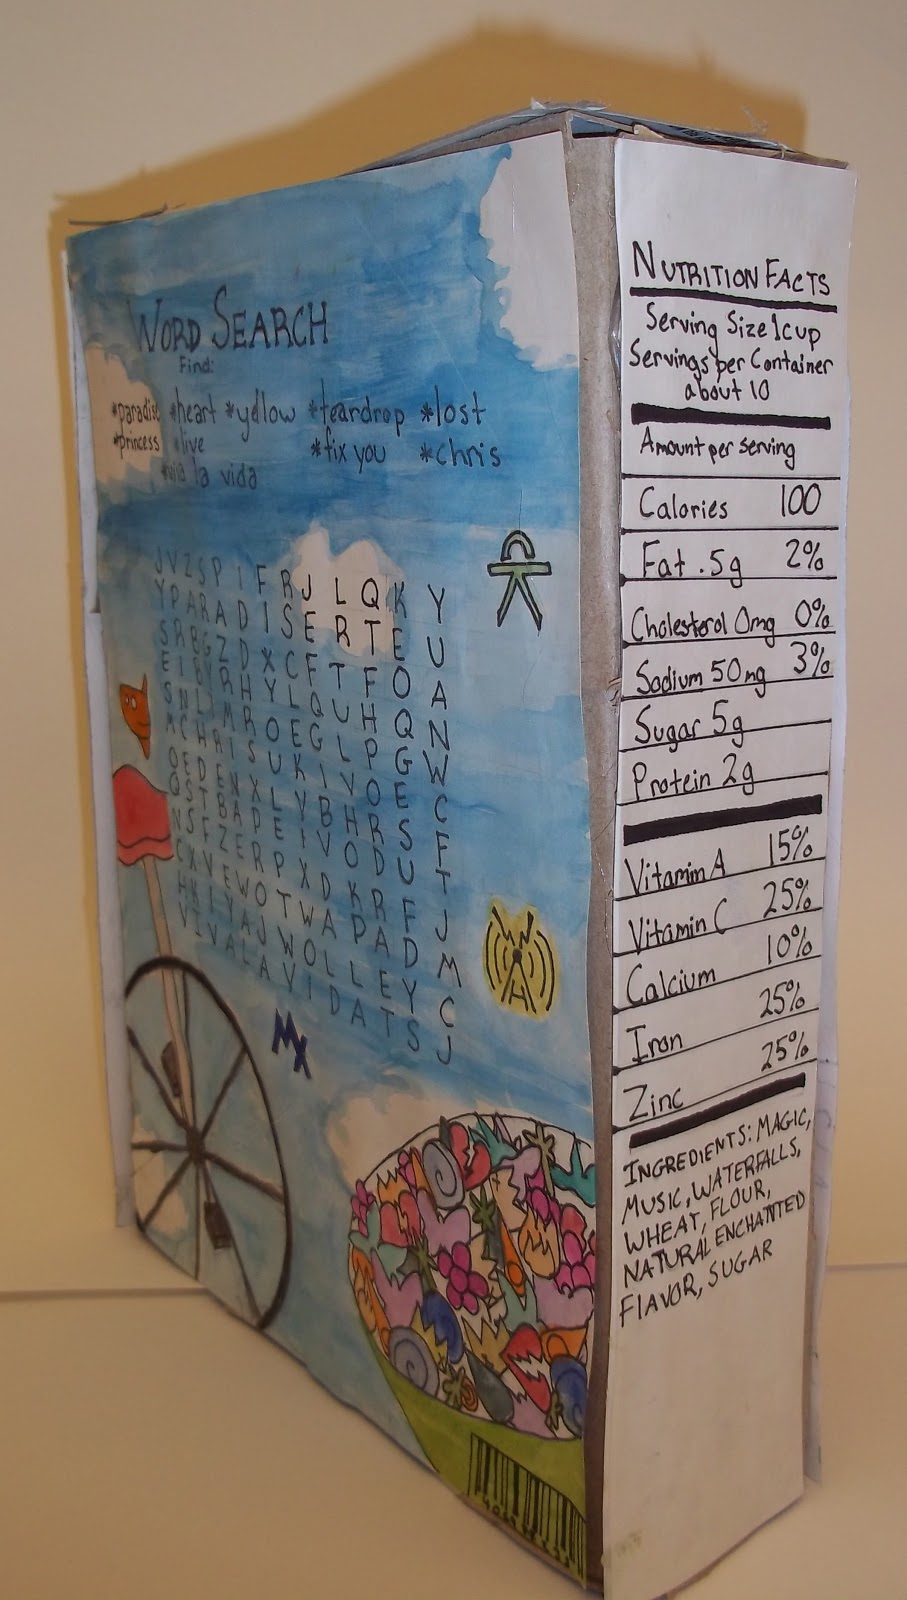 WORD SEARCH
Find:
*paradise *heart *yellow *teardrop *lost
*princess *live *fix you *chris
*viva la vida
J V Z S P I F R J L Q K Y
Y P A R A D I S E R T E U
S R B G Z D X C F T F O A
E I B Y R H Y L Q U H Q N
S N L J M R O E G L P G W
M C H R I S U K I V O E C
O E D E N X L Y B H R S F
Q S T B A P E I V O D U T
N S F Z E R P X D K R F J
C X V E W O T W A P A D M
H K I Y A J W O L L E Y C
V I V A L A V I D A T S J
MX
NUTRITION FACTS
Serving Size 1cup
Servings per Container
about 10
Amount per serving
Calories 100
Fat .5g 2%
Cholesterol 0mg 0%
Sodium 50mg 3%
Sugar 5g
Protein 2g
Vitamin A 15%
Vitamin C 25%
Calcium 10%
Iron 25%
Zinc 25%
INGREDIENTS: MAGIC,
MUSIC, WATERFALLS,
WHEAT, FLOUR,
NATURAL ENCHANTED
FlAVOR, SUGAR